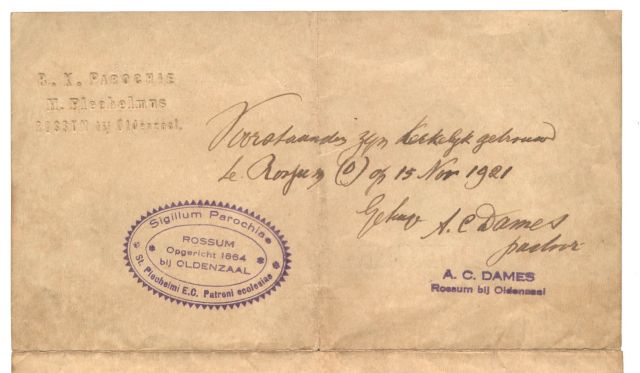 R. K. PAROCHIE
H. Plechelmus
ROSSUM bij Oldenzaal.
Voorstaanden zijn kerkelijk getrouwd
te Rossum (O) op 15 Nov 1921
A. C Dames
pastoor
Sigillum Parochiae
ROSSUM
Opgericht 1864
bij OLDENZAAL
St. Plechelmi E.C. Patroni ecclesiae
A. C. DAMES
Rossum bij Oldenzaal